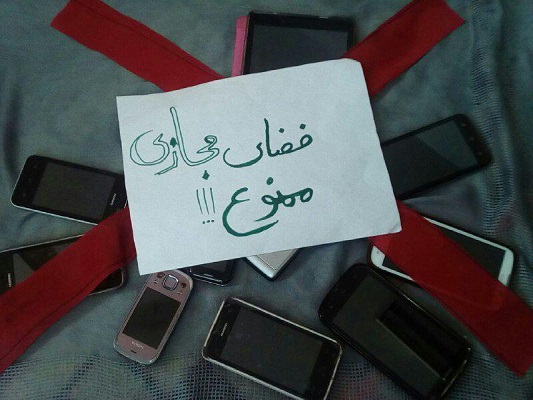 فضای مجازی
ممنوع !!!